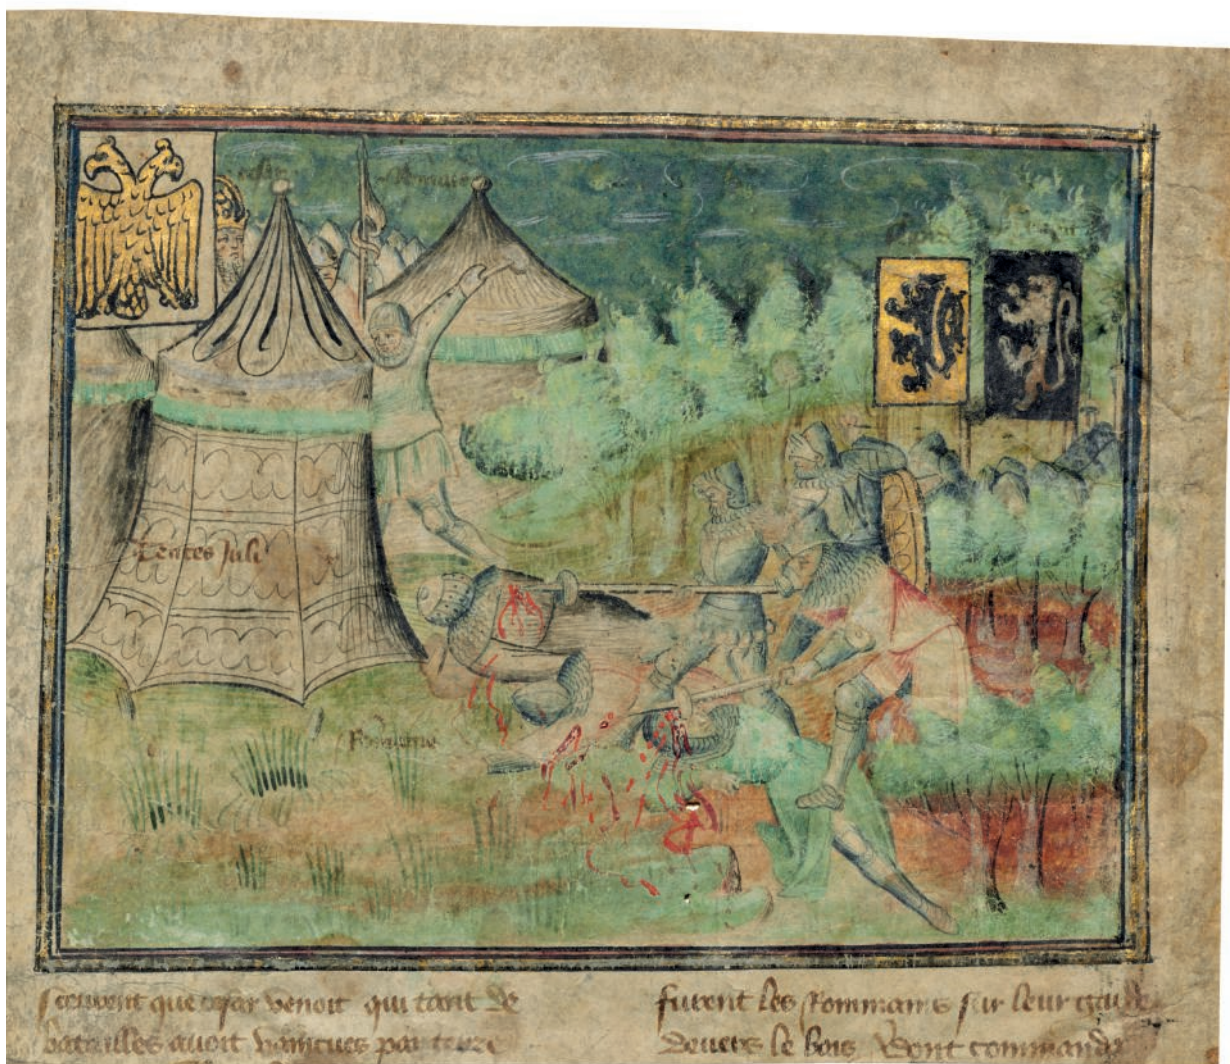 cesar
Rommains
Tentes Juli
Rommains
sceurent que cesar venoit qui tant de
batailles auoit vaincues par terre
furent les Rommains sur leur garde
deuers le bois Dont commanda